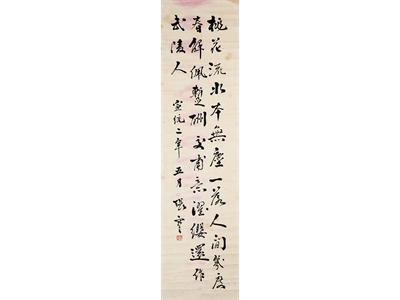 桃花流水本無塵一落人間幾度
春解佩蹔酬交甫意濯纓還作
武陵人
宣統二年五月 張謇